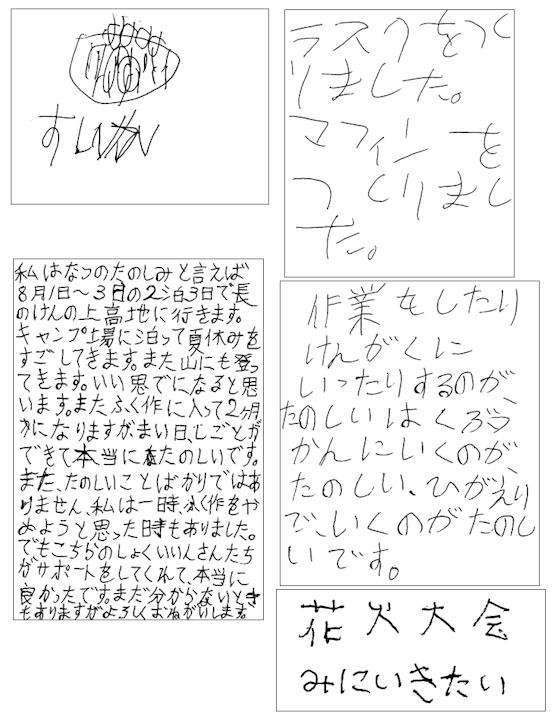 すいか
ラスクをつく
りました。
マフィンを
つくりまし
た。
私はなつのたのしみと言えば
8月1日～3日の2泊3日で長
のけんの上高地に行きます。
キャンプ場に泊って夏休みを
すごしてきます。また山にも登っ
てきます。いい思でになると思
います。またふく作に入って2ヶ月
かになりますがまい日、しごとが
できて本当にたのしいです。
また、たのしいことばかりではあ
りません、私は一時、ふく作をや
めようと思った時もありました。
でもこちらのしょくいいんさんたち
がサポートをしてくれて、本当に
良かったです。まだ分からないとき
もありますがよろしくおねがいします。
作業をしたり
けんがくに
いったりするのが、
たのしいはくぶつ
かんにいくのが、
たのしい、ひがえり
で、いくのがたのし
いです。
花火大会
みにいきたい